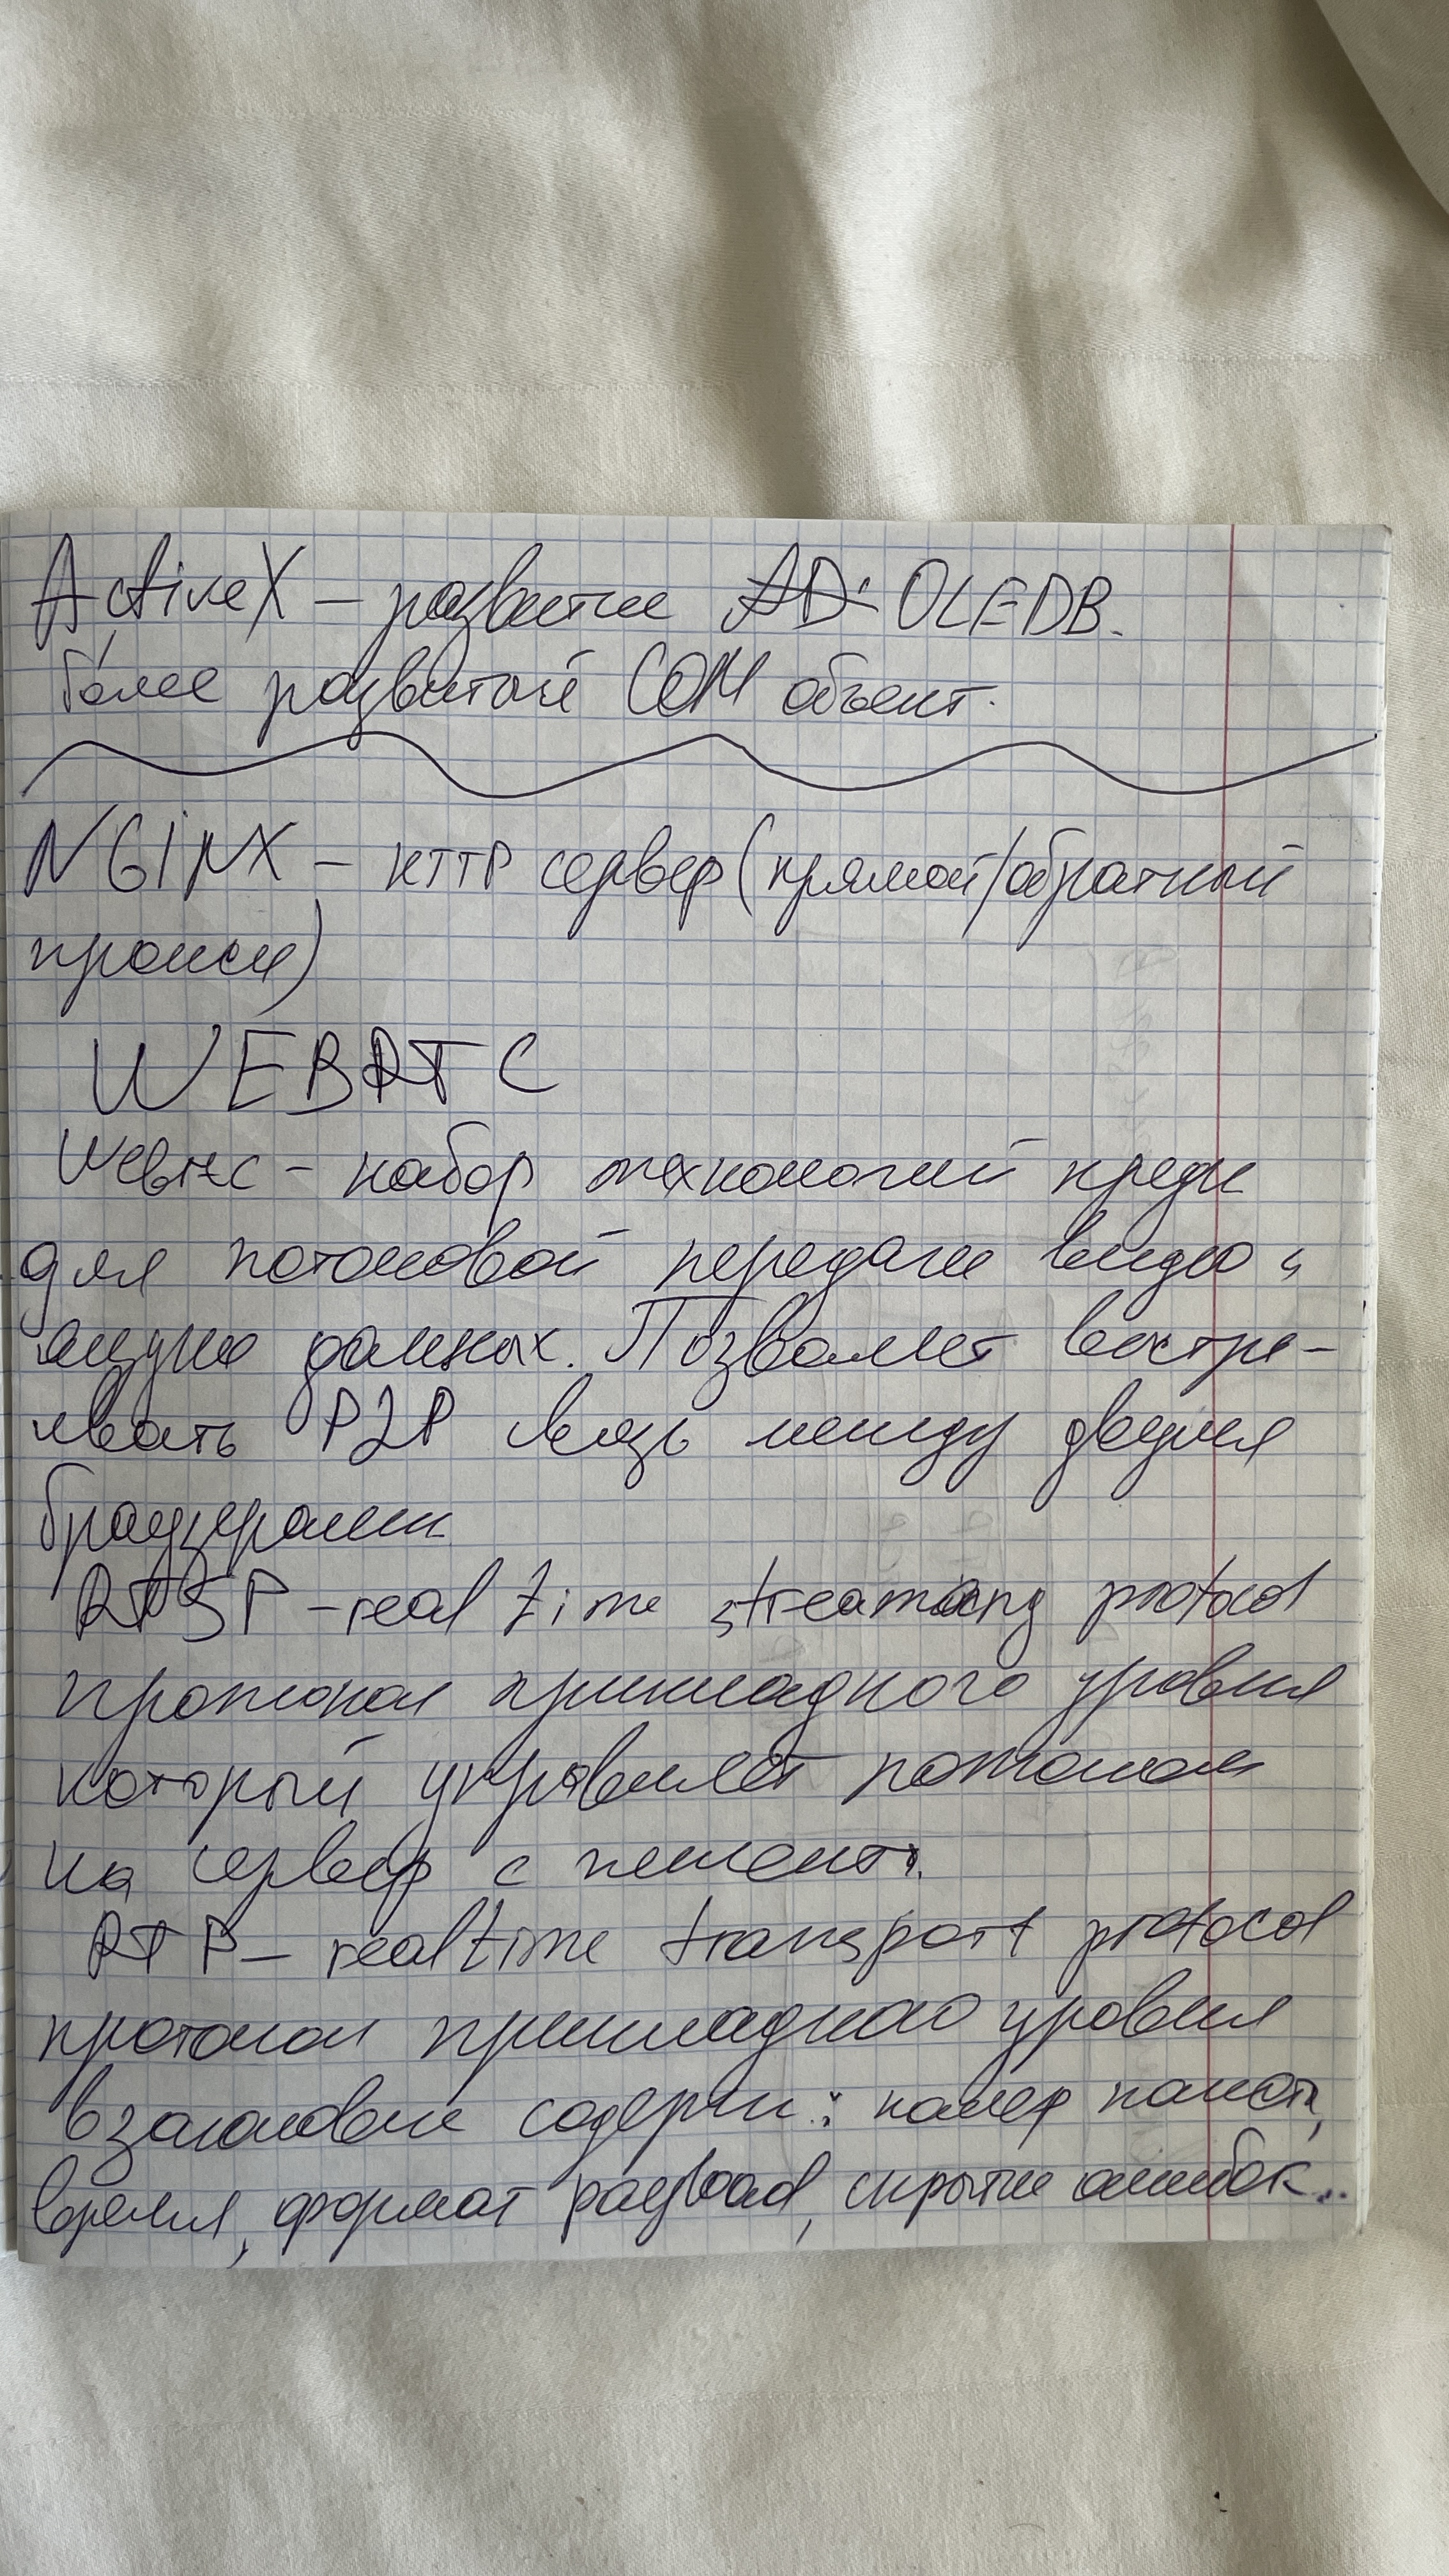 ActiveX – развитие OLEDB.
более развитый COM объект.
NGINX – HTTP сервер (прямой/обратный
прокси)
WEBRTC
Webrtc – набор технологий
для потоковой передачи видео и
аудио данных. Позволяет выстра-
ивать P2P связь между двумя
браузерами
RTSP – real time streaming protocol
протокол прикладного уровня
который управляет потоком
на сервер с клиент.
RTP – realtime transport protocol
протокол прикладного уровня
в заголовке содержи: номер пакета,
время, формат payload, скрытие ошибок..